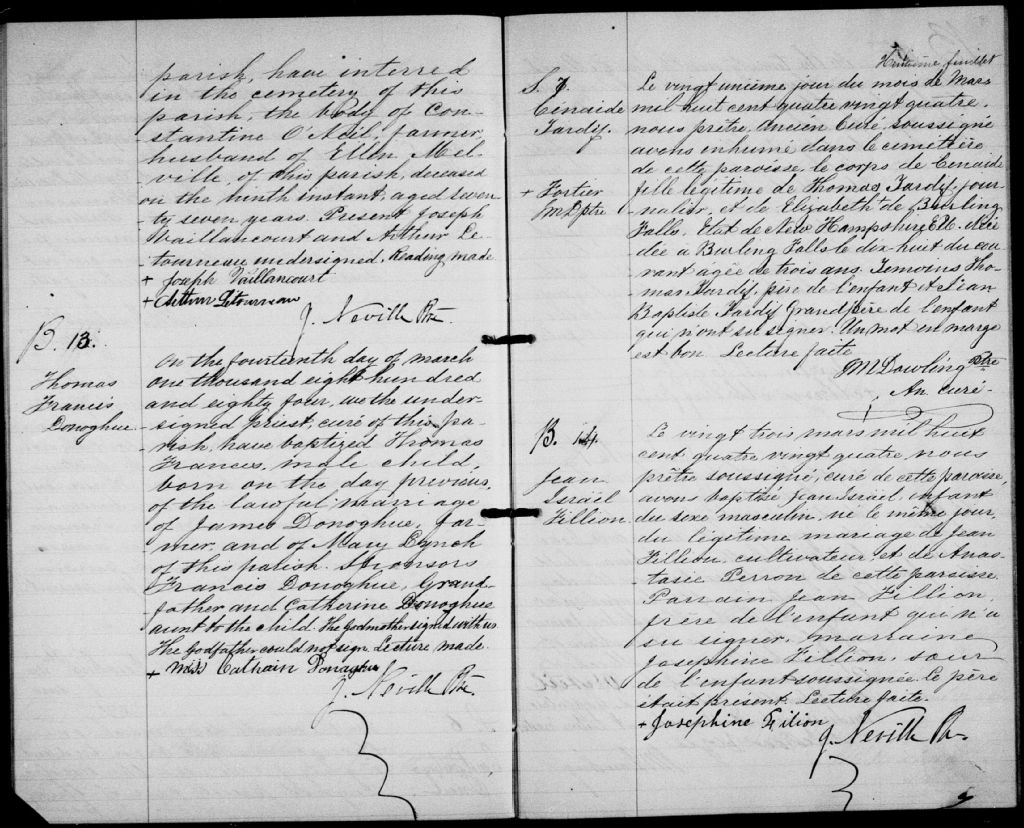 parish, have interred
in the cemetery of this
parish, the body of Con-
stantine O'Neil, farmer,
husband of Ellen Mel-
ville, of this parish, deceased
on the ninth instant, aged seven-
ty seven years. Present Joseph
Vaillancourt and Arthur Le-
tourneau undersigned, Reading made
+ Joseph Vaillancourt
+ Arthur Letourneau
J. Neville Ptre.
B. 13.
Thomas
Francis
Donoghue
On the fourteenth day of march
one thousand eight hundred
and eighty four, we the under-
signed priest, curé of this pa-
rish, have baptized Thomas
Francis, male child,
born on the day previous,
of the lawful marriage
of James Donoghue, far-
mer, and of Mary Lynch
of this parish. Sponsors
Francis Donoghue, Grand-
father and Catherine Donoghue
aunt to the child. The godmother signed with us
The Godfather could not sign. Lecture made.
+ Miss Cathain Donaghue
J. Neville Ptre.
Huitième feuillet
S. 7.
Cenaide
Tardif.
+ Fortier
M D ptre
Le vingt unième jour du mois de Mars
mil huit cent quatre vingt quatre,
nous prêtre, Ancien Curé soussigné
avons inhumé dans le cimetière
de cette paroisse, le corps de Cenaide
fille légitime de Thomas Tardif, jour-
nalier, et de Elizabeth + de Burling
Falls, Etat de New Hampshire E.U. décé-
dée à Burling Falls le dix-huit du cou-
rant âgée de trois ans. Temoins Tho-
mas Tardif, père de l'enfant et Jean
Baptiste Tardif Grandpère de l'enfant
qui n'ont su signer. Un mot en marge
est bon Lecture faite
M Dowling Ptre
An. Curé.
B. 14.
Jean
Israël
Fillion
Le vingt trois mars mil huit
cent quatre vingt quatre, nous
prêtre soussigné, curé de cette paroisse,
avons baptisé Jean Israël, enfant
du sexe masculin, né le même jour,
du légitime mariage de Jean
Fillion, cultivateur et de Anas-
tasie Perron de cette paroisse.
Parrain Jean Fillion,
frère de l'enfant qui n'a
su signer, marraine
Josephine Fillion, sœur
de l'enfant soussignée. le père
était présent. Lecture faite.
+ Josephine Filion
J. Neville Ptre